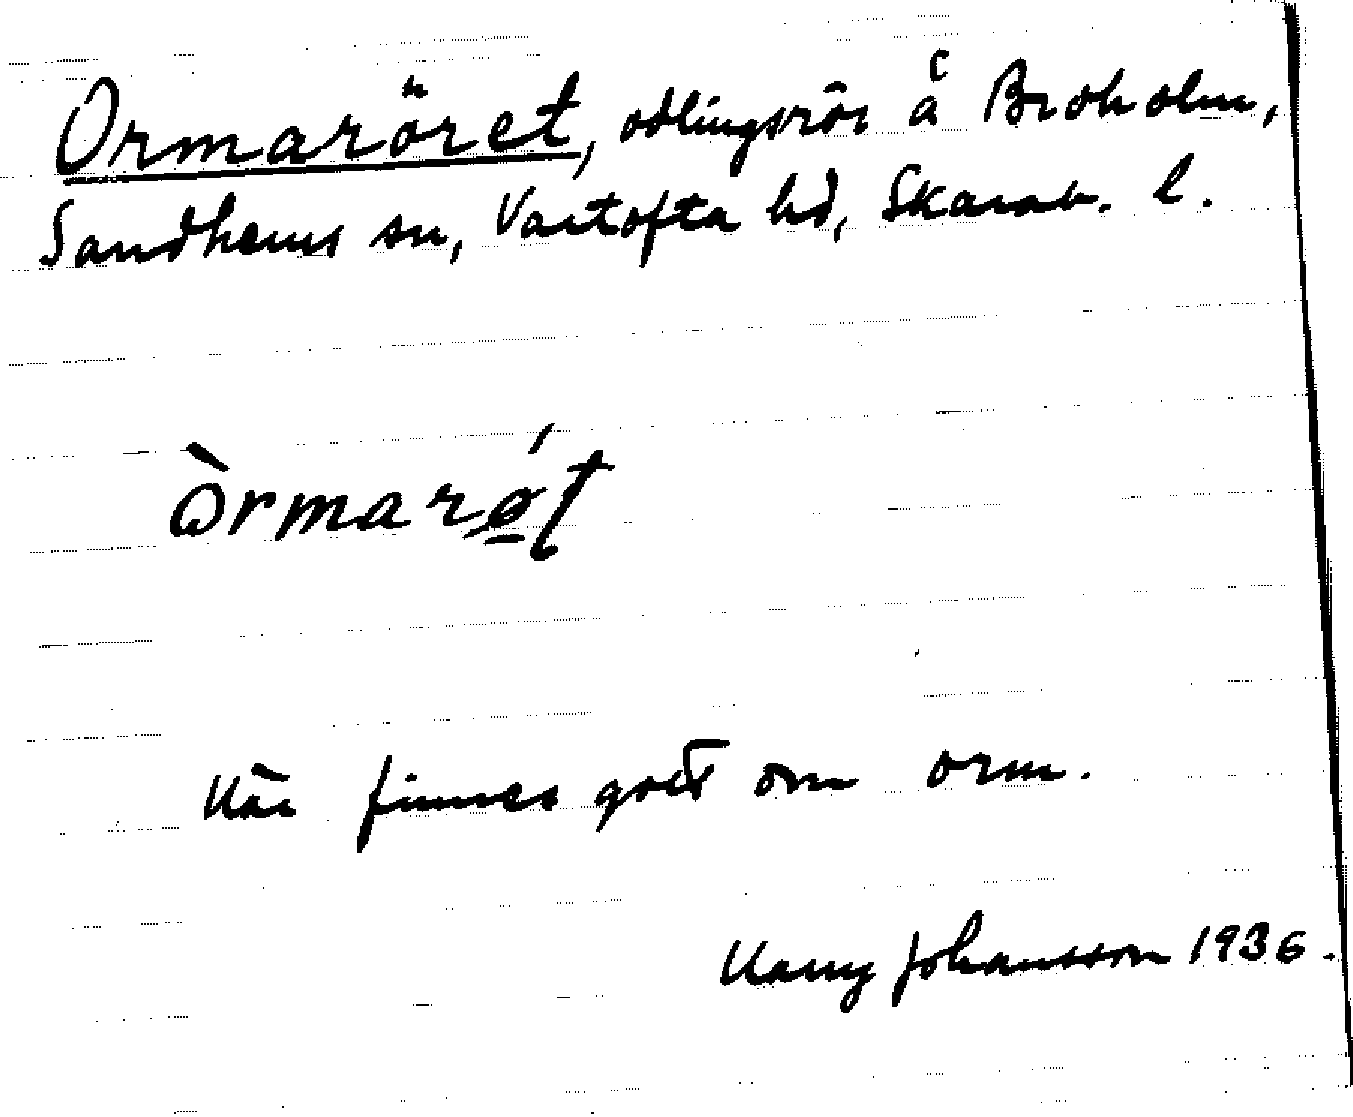 Ormaröret, odlingsrös å Broholm,
Sandhems sn, Vartofta hd, Skarab. l.
Här finnes gott om orm.
Harry Johansson 1936.